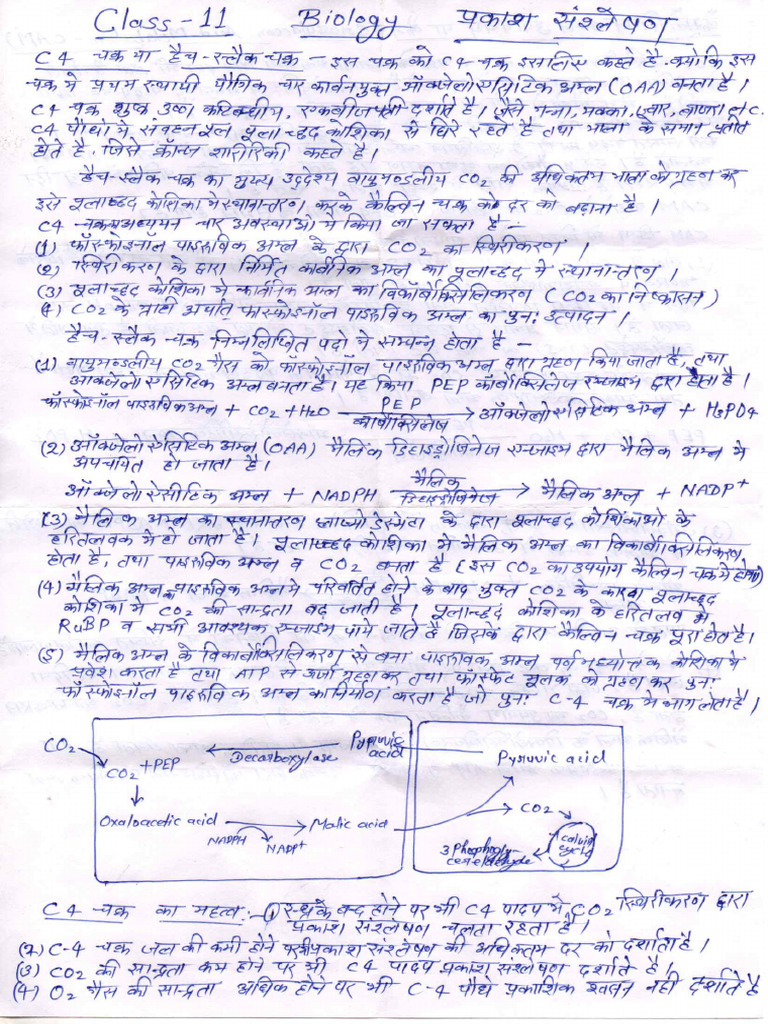 Class-11 Biology प्रकाश संश्लेषण
C4 चक्र या हैच-स्लैक चक्र - इस चक्र को C4 चक्र इसलिए कहते है. क्योंकि इस
चक्र मे प्रथम स्थायी यौगिक चार कार्बनयुक्त ऑक्जेलोएसिटिक अम्ल (OAA) बनता है।
C4 चक्र शुष्क उष्ण कटिबन्धीय, एकबीजपत्री दर्शाते है। जैसे गन्ना, मक्का, ज्वार, बाजरा
C4 पौधो मे संवहन पूल पूलाच्छद कोशिका से घिरे रहते है तथा माला के समान प्रतीत
होते है. जिसे क्रॉन्ज शारीरिकी कहते है।
हैच-स्लैक चक्र का मुख्य उद्देश्य वायुमण्डलीय CO2 की अधिकतम मात्रा को ग्रहण कर
इसे पूलाच्छद कोशिका मे स्थानान्तरण करके कैल्विन चक्र की दर को बढ़ाना है।
C4 चक्र अध्ययन चार अवस्थाओ मे किया जा सकता है -
(1) फॉस्फोइनाल पाइरुविक अम्ल के द्वारा CO2 का स्थिरीकरण।
(2) स्थिरीकरण के द्वारा निर्मित कार्बनिक अम्ल का पूलाच्छद मे स्थानान्तरण।
(3) पूलाच्छद कोशिका मे कार्बनिक अम्ल का विकार्बोक्सिलिकरण (CO2 का निष्कासन)
(4) CO2 के ग्राही अर्थात फास्फोइनॉल पाइरुविक अम्ल का पुनः उत्पादन।
हैच-स्लैक चक्र निम्नलिखित पदो मे सम्पन्न होता है -
(1) वायुमण्डलीय CO2 गैस को फॉस्फोइनॉल पाइरुविक अम्ल द्वारा ग्रहण किया जाता है, तथा
ऑक्जेलोएसिटिक अम्ल बनता है। यह क्रिया PEP कॉर्बोक्सिलेज एन्जाइम द्वारा होता है।
फॉस्फोइनॉल पाइरुविक अम्ल + CO2 + H2O PEP कार्बोक्सिलेज → ऑक्जेलोएसिटिक अम्ल + H3PO4
(2) ऑक्जेलोएसिटिक अम्ल (OAA) मैलिक डिहाइड्रोजिनेज एन्जाइम द्वारा मैलिक अम्ल मे
अपचयित हो जाता है।
ऑक्जेलोएसीटिक अम्ल + NADPH मैलिक डिहाइड्रोजिनेज → मैलिक अम्ल + NADP+
(3) मैलिक अम्ल का स्थानातरण प्लाज्मोडेस्मेटा के द्वारा पूलाच्छद कोशिकाओ के
हरितलवक मे हो जाता है। पूलाच्छद कोशिका मे मैलिक अम्ल का विकार्बोक्सिलिकरण
होता है, तथा पाइरुविक अम्ल व CO2 बनता है (इस CO2 का उपयोग कैल्विन चक्र मे होगा)
(4) मैलिक अम्ल पाइरुविक अम्ल मे परिवर्तित होने के बाद मुक्त CO2 के कारण पूलाच्छद
कोशिका मे CO2 की सान्द्रता बढ़ जाती है। पूलाच्छद कोशिका के हरितलव मे
RuBP व सभी आवश्यक एन्जाइम पाये जाते है जिसके द्वारा कैल्विन चक्र पूरा होता है।
(5) मैलिक अम्ल के विकार्बोक्सिलिकरण से बना पाइरुविक अम्ल पर्ण मध्योत्तक कोशिका मे
प्रवेश करता है तथा ATP से ऊर्जा ग्रहण कर तथा फास्फेट मूलक को ग्रहण कर पुनः
फॉस्फोइनॉल पाइरुविक अम्ल का निर्माण करता है जो पुनः C-4 चक्र मे भाग लेता है।
CO2
CO2 + PEP
Decarboxylase
Pyruvic acid
Pyruvic acid
Oxaloacetic acid
NADPH
NADP+
Malic acid
CO2
Calvin cycle
3 Phosphoglyceraldehyde
C4 चक्र का महत्व :- (1) रन्ध्र के बन्द होने पर भी C4 पादप मे CO2 स्थिरीकरण द्वारा
प्रकाश संश्लेषण चलता रहता है।
(2) C-4 चक्र जल की कमी होने पर भी प्रकाश संश्लेषण की अधिकतम दर को दर्शाता है।
(3) CO2 की सान्द्रता कम होने पर भी C4 पादप प्रकाश संश्लेषण दर्शाते है।
(4) O2 गैस की सान्द्रता अधिक होने पर भी C-4 पौधे प्रकाशिक श्वसन नही दर्शाते है